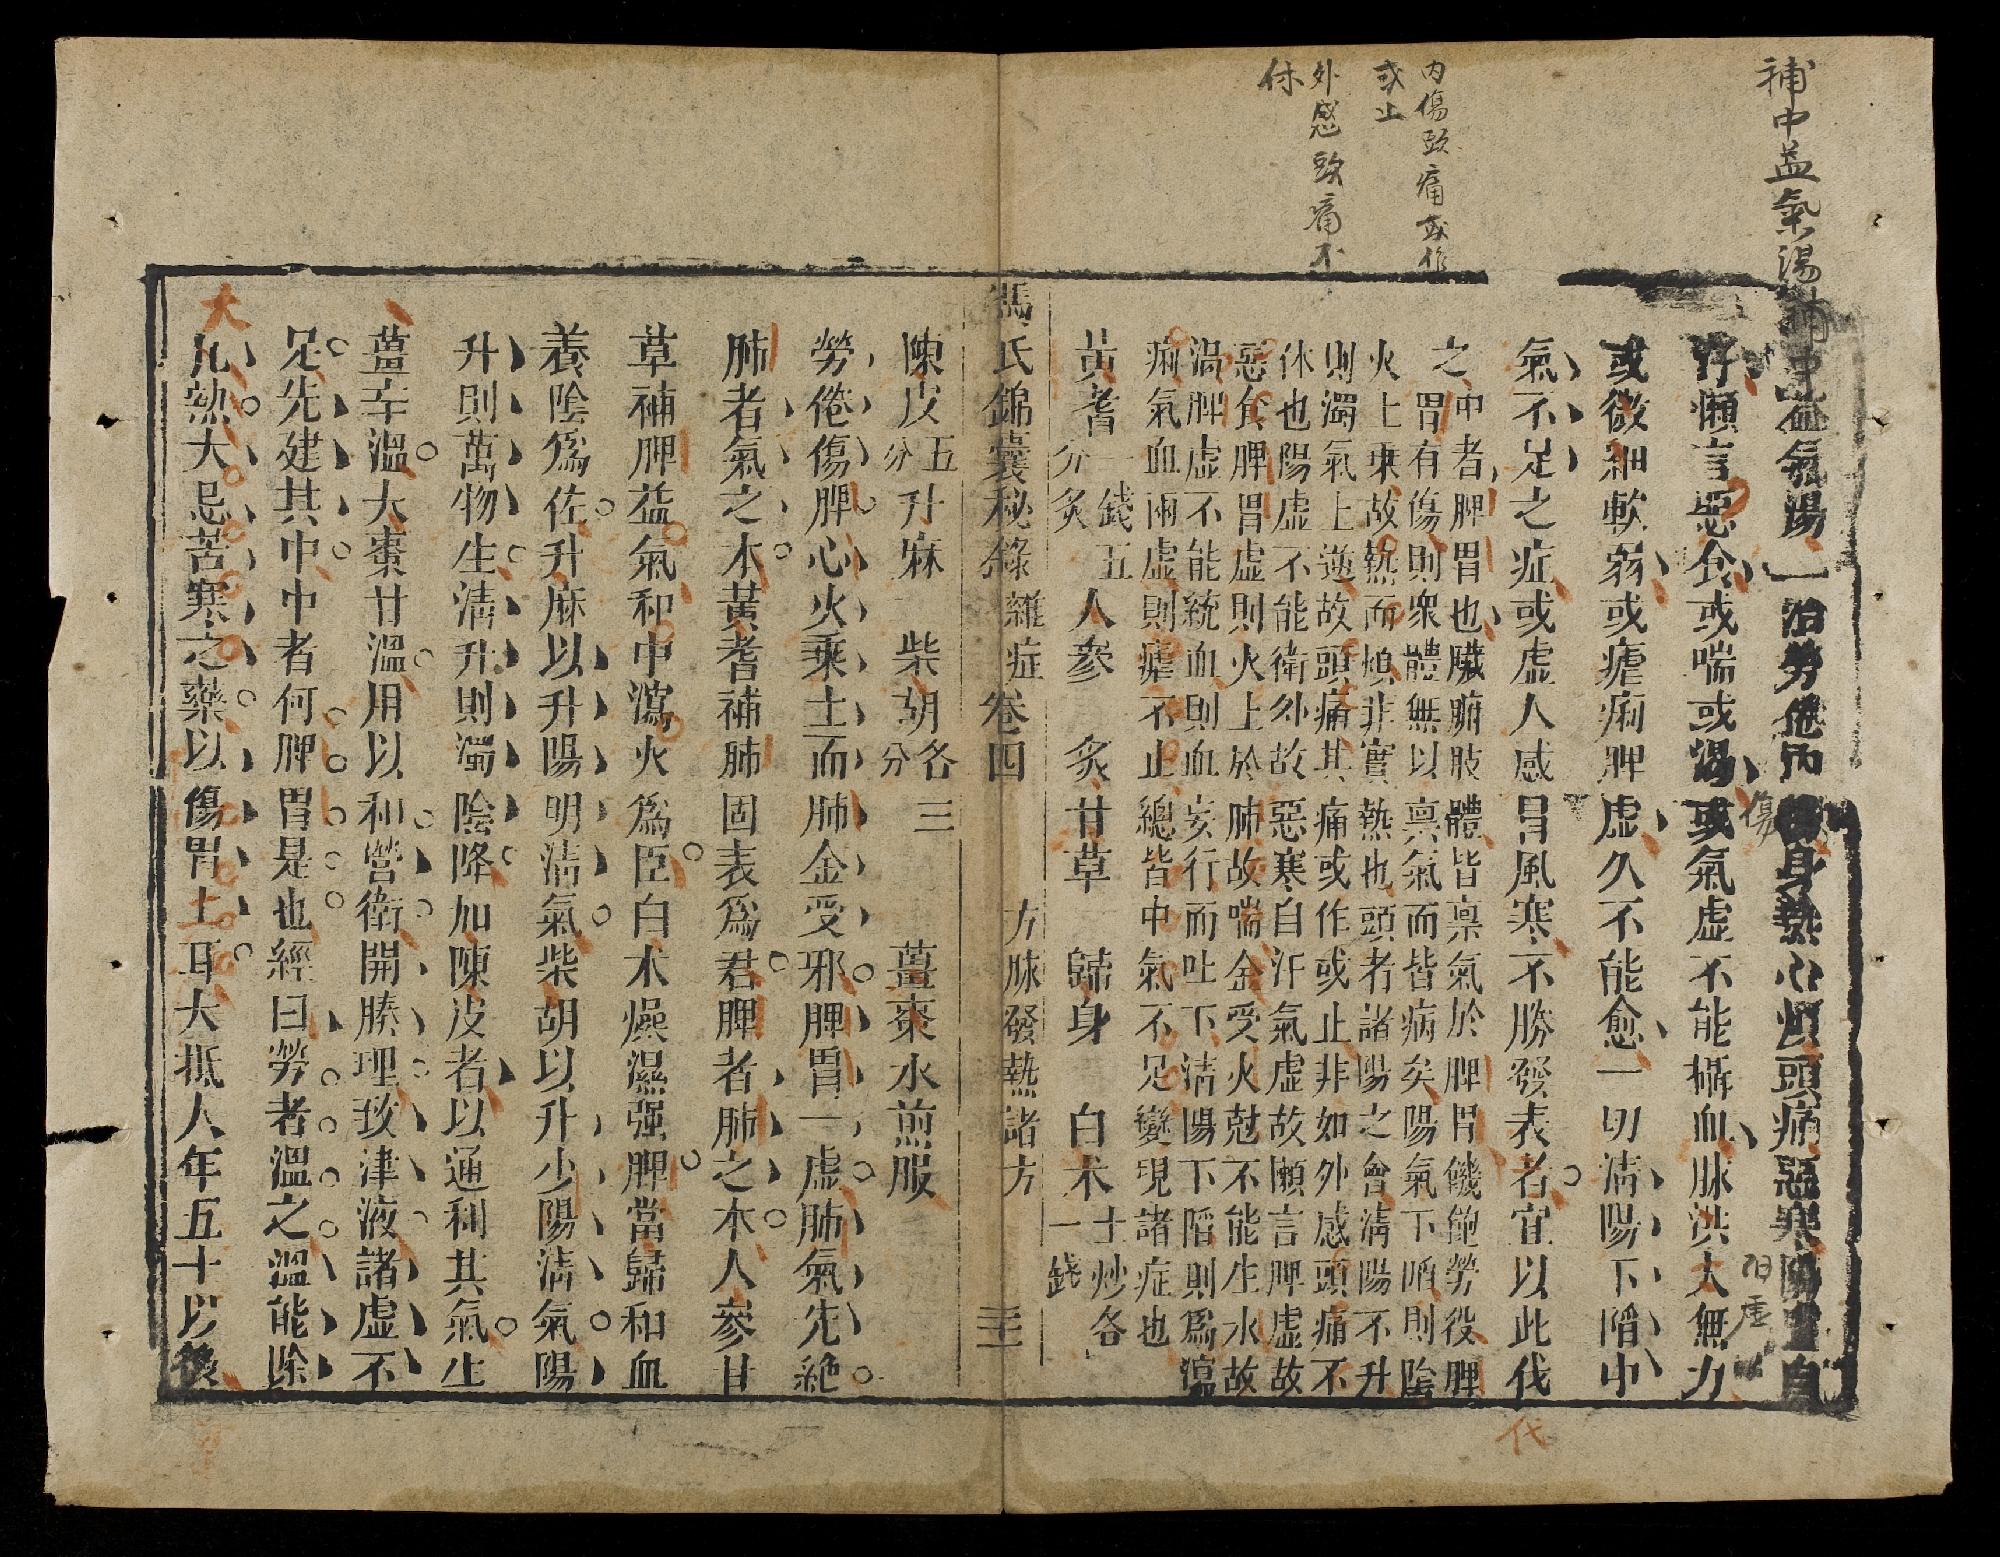 補中益氣湯
內傷頭痛或作
或止
外感頭痛不
休
補中益氣湯 治勞倦內傷身熱心煩頭痛惡寒陽虛自
汗懶言惡食或喘或渴或氣虛不能攝血脉洪大無力
或微細軟弱或瘧痢脾虛久不能愈一切清陽下陷中
氣不足之症或虛人感冒風寒不勝發表者宜以此伐
之中者脾胃也臟腑肢體皆稟氣於脾胃饑飽勞役脾
胃有傷則衆體無以稟氣而皆病矣陽氣下陷則陰
火上乘故熱而煩非實熱也頭者諸陽之會清陽不升
則濁氣上逆故頭痛其痛或作或止非如外感頭痛不
休也陽虛不能衛外故惡寒自汗氣虛故懶言脾虛故
惡食脾胃虛則火上於肺故喘金受火尅不能生水故
渴脾虛不能統血則血妄行而吐下清陽下陷則為瀉
痢氣血兩虛則瘧不止總皆中氣不足變現諸症也
黃耆一錢五分炙 人參 炙甘草 歸身 白术土炒各一錢
馮氏錦囊秘錄 雜症卷四 方脉發熱諸方 三十一
陳皮五分 升麻 柴胡各三分 薑棗水煎服
勞倦傷脾心火乘土而肺金受邪脾胃一虛肺氣先絕
肺者氣之本黃耆補肺固表為君脾者肺之本人參甘
草補脾益氣和中瀉火為臣白术燥濕强脾當歸和血
養陰為佐升麻以升陽明清氣柴胡以升少陽清氣陽
升則萬物生清升則濁陰降加陳皮者以通利其氣生
薑辛溫大棗甘溫用以和營衛開腠理致津液諸虛不
足先建其中中者何脾胃是也經曰勞者溫之溫能除
大
凡熱大忌苦寒之藥以傷胃土耳大抵人年五十以後
傷
陽虛
代